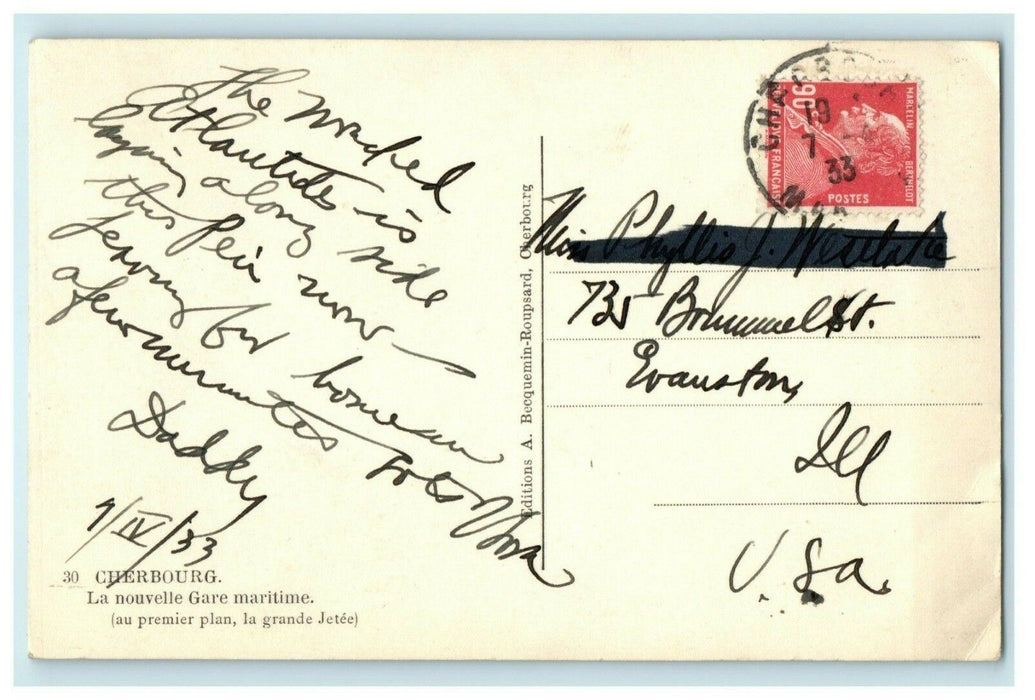 The wrecked
Atlantides is
laying along side
this Peir now —
leaving for home in
a few minutes
Daddy
7/IV/33
30 CHERBOURG.
La nouvelle Gare maritime.
(au premier plan, la grande Jetée)
Editions A. Becquemin-Roupsard, Cherbourg
CHERBO
19
7 -4
33
90
MARCELIN BERTHELOT
POSTES
Miss Phyllis J. Westlake
735 Brummel St.
Evanston,
Ill
U. S a.